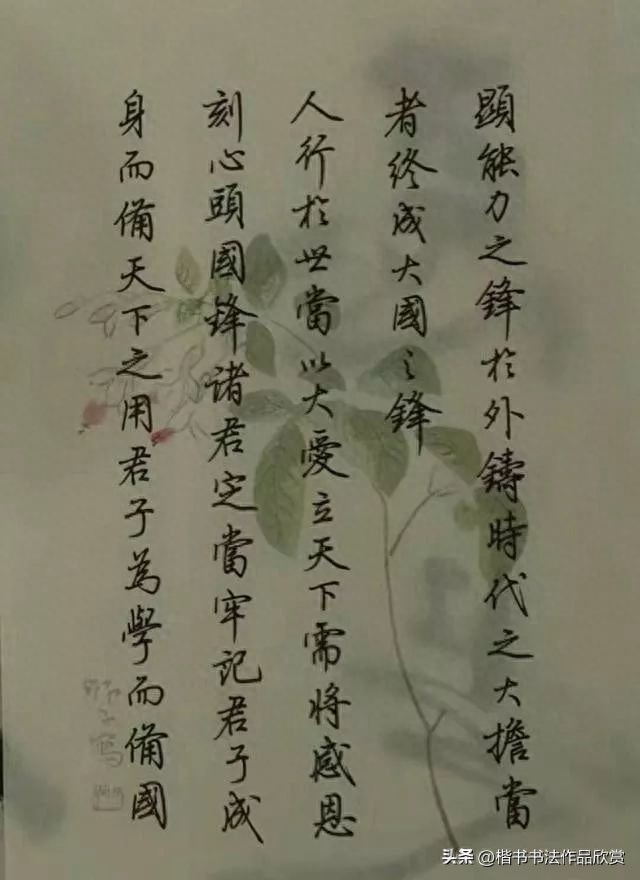 顯能力之鋒於外鑄時代之大擔當
者終成大國之鋒
人行於世當以大愛立天下需將感恩
刻心頭國鋒諸君定當牢記君子成
身而備天下之用君子為學而備國
頭条 @楷书书法作品欣赏